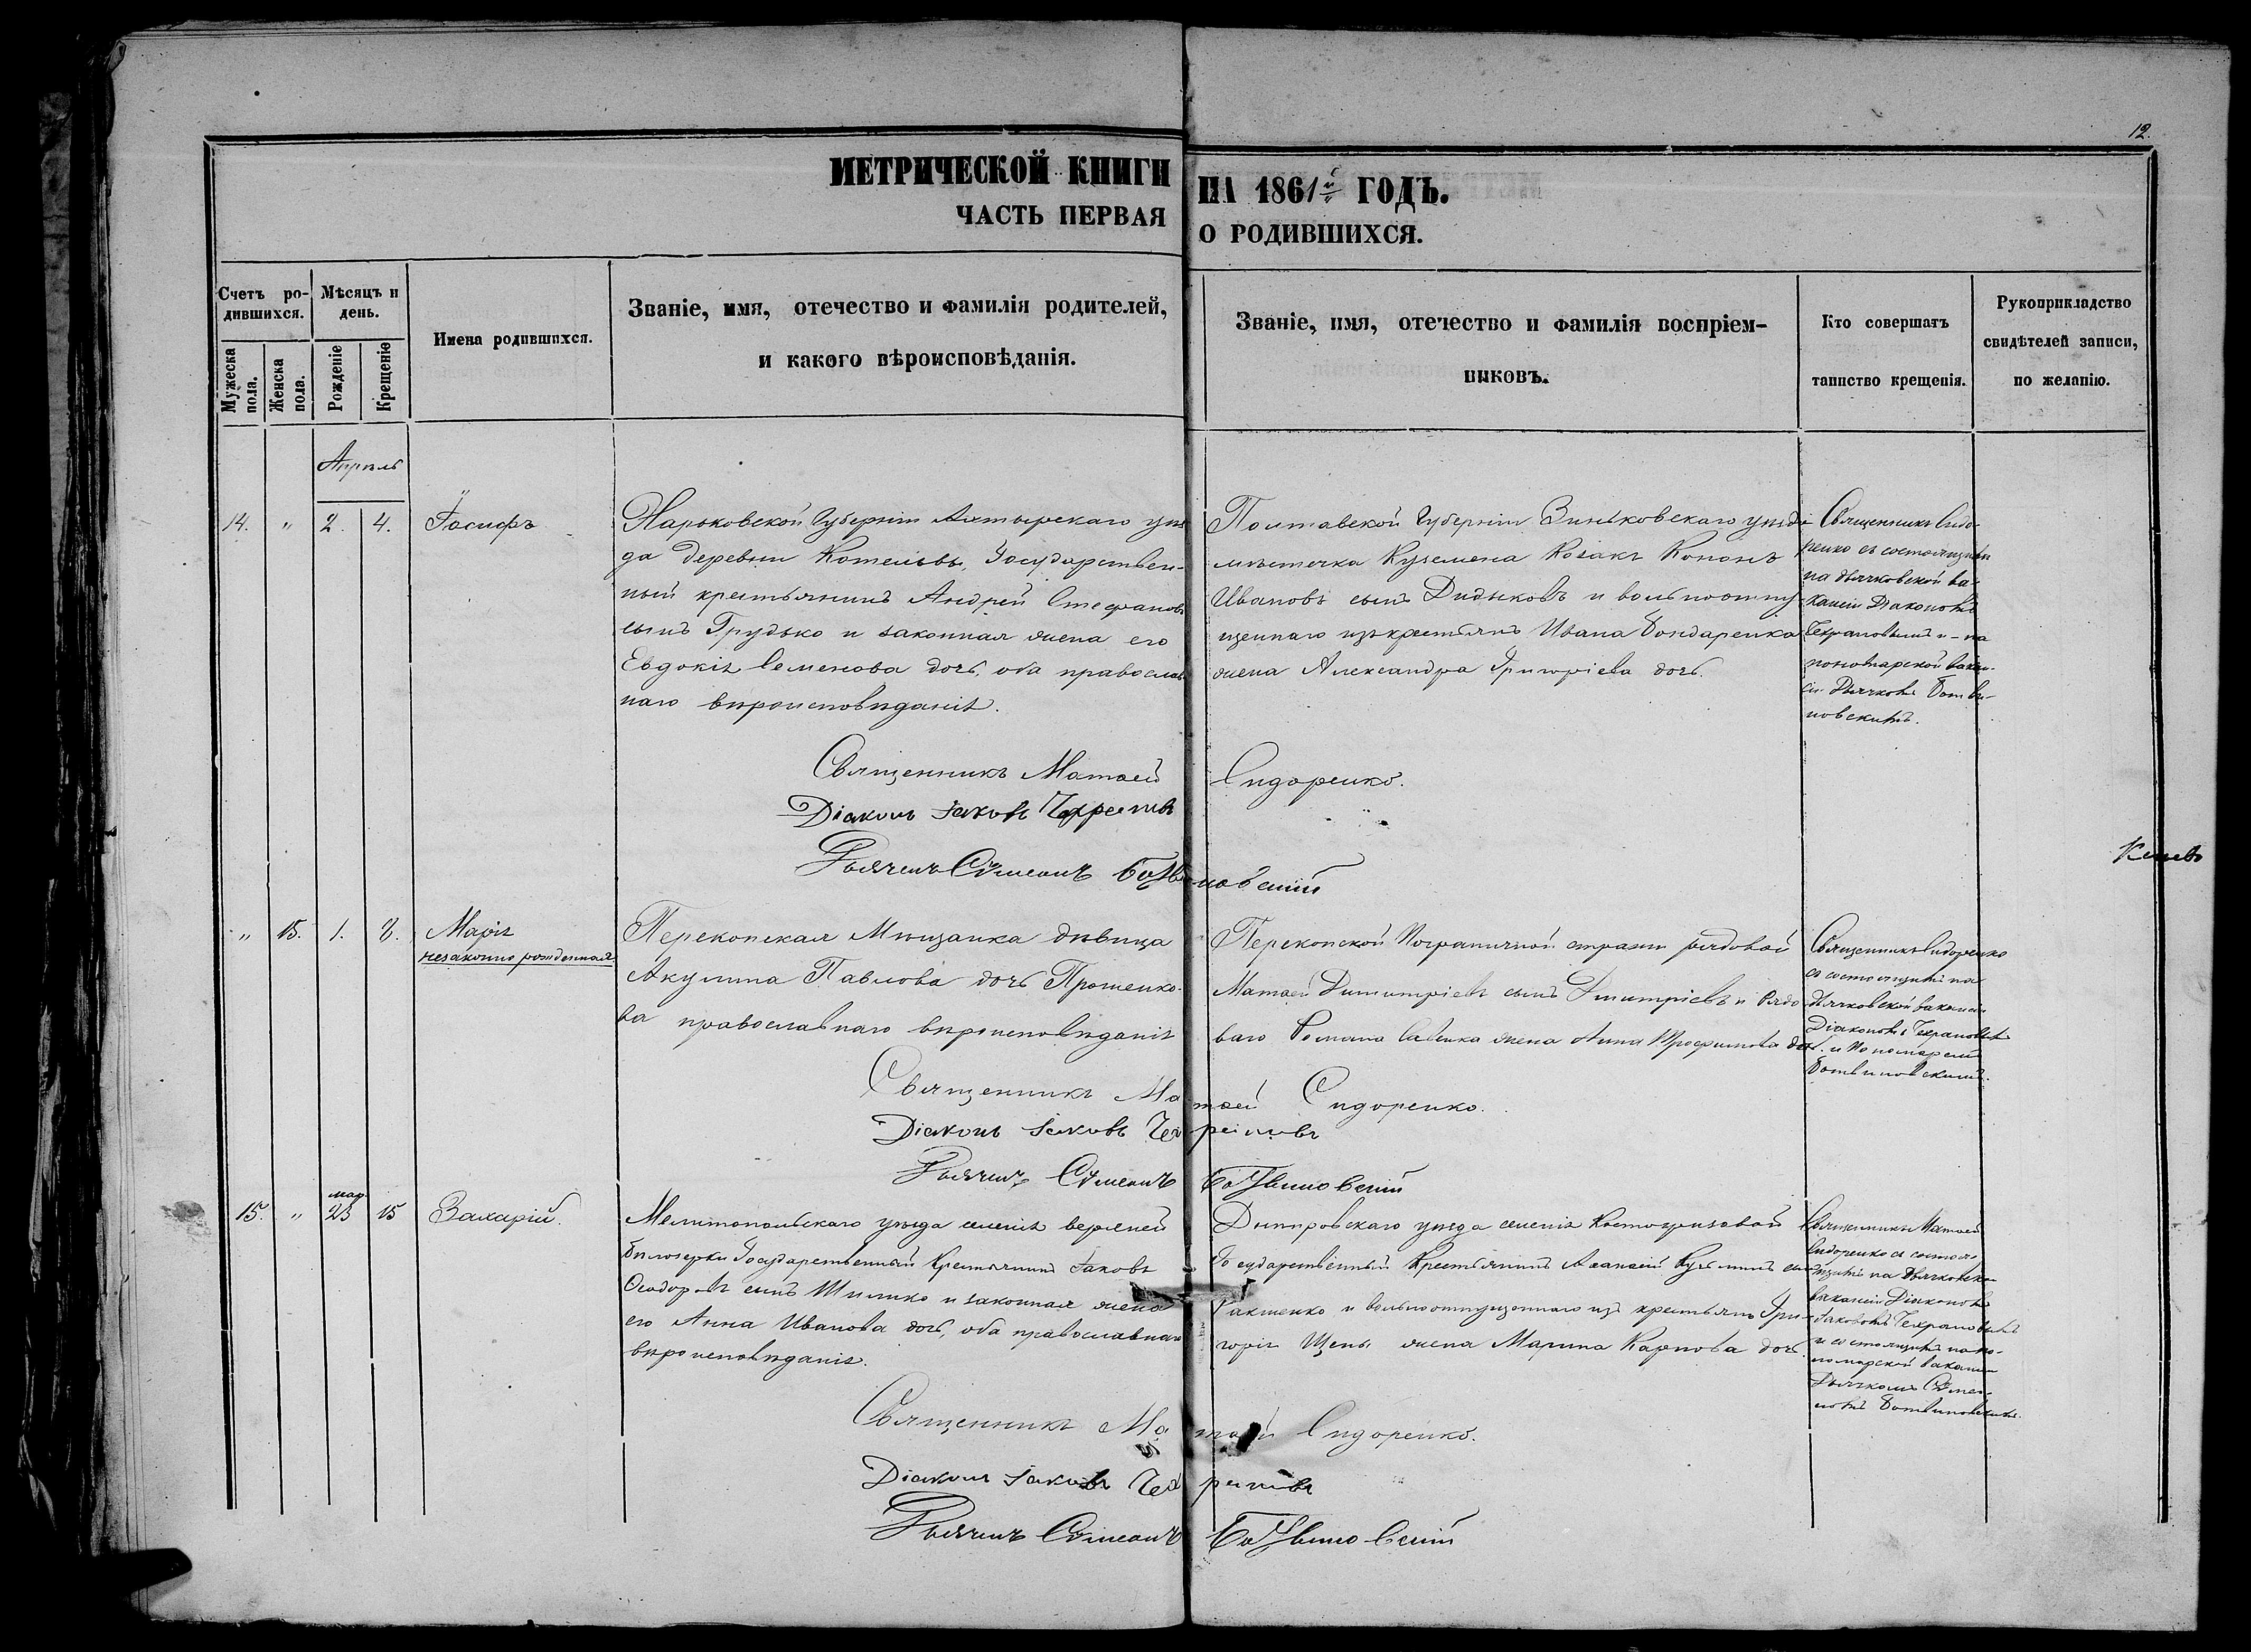 12.
МЕТРИЧЕСКОЙ КНИГИ НА 1861й ГОДЪ.
ЧАСТЬ ПЕРВАЯ О РОДИВШИХСЯ.
Счетъ ро-
дившихся.
Мужеска пола.
Женска пола.
Мѣсяцъ и
день.
Рожденіе
Крещеніе
Имена родившихся.
Званіе, имя, отечество и фамилія родителей,
и какого вѣроисповѣданія.
Званіе, имя, отечество и фамилія воспріем-
никовъ.
Кто совершатъ
таинство крещенія.
Рукоприкладство
свидѣтелей записи,
по желанію.
Апрѣль
14. " 2. 4. Іосифъ
Харьковской Губерніи Ахтырскаго уѣз
да деревни Котельвы, Государствен-
ный крестьянинъ Андрей Стефановъ
сынъ Грудько и законная жена его
Евдокія Семенова дочь, оба православ
наго вѣроисповѣданія.
Полтавской Губерніи Зиньковскаго уѣзда
мѣстечка Куземена Козакъ Кононъ
Ивановъ сынъ Дидыковъ и вольноотпу
щеннаго изъ крестьянъ Ивана Бондаренка
жена Александра Григоріева дочь.
Священникъ Сидо-
ренко съ состоящимъ
на дьячковской ва-
кансіи Діакономъ
и на
пономарской вакан-
сіи Дьячкомъ Ботви-
новскимъ.
Священникъ Матвей Сидоренко.
Діаконъ Іаковъ
Дьячекъ Симеонъ Ботвиновскій
" 15. 1. 8. Марія
незаконно рожденная
Перекопская Мѣщанка дѣвица
Акулина Павлова дочь Прошенко-
ва православнаго вѣроисповѣданія
Перекопской Пограничной стражи рядовой
Матвей Димитріевъ сынъ Дмитріевъ и Рядо
ваго Романа Савенка жена Анна Трофимова дочь
Священникъ Сидоренко
съ состоящимъ на
Дьячковской вакансіи
Діакономъ
и Пономаремъ
Ботвиновскимъ.
Священникъ Матвей Сидоренко.
Діаконъ Іаковъ
Дьячекъ Симеонъ Ботвиновскій
мар.
15. " 23 15 Захарій.
Мелитопольскаго уѣзда селенія верхней
Бѣлозерки Государственный Крестьянинъ Іаковъ
Ѳеодоровъ сынъ Шилико и законная жена
его Анна Иванова дочь, оба православнаго
вѣроисповѣданія.
Днѣпровскаго уѣзда селенія Костогризовой
Государственный Крестьянинъ Аѳанасій Кузьминъ сынъ
Ракшенко и вольноотпущеннаго изъ крестьянъ Гри-
горія Щепы жена Марина Карпова дочь.
Священникъ Матвей
Сидоренко съ состоя-
щимъ на Дьячковской
вакансіи Діакономъ
Іаковомъ
и состоящимъ на по-
номарской вакансіи
Дьячкомъ Симео-
номъ Ботвиновскимъ.
Священникъ Матвей Сидоренко.
Діаконъ Іаковъ
Дьячекъ Симеонъ Ботвиновскій